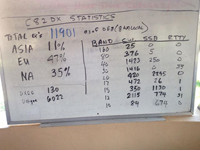 C82DX STATISTICS
TOTAL QSO's 11901
ASIA 11%
EU 47%
NA 35%
DXCC 130
6022
BAND CW SSB RTTY
160 25 0 0
80 376 5 0
40 1423 250 0
30 1416 0 39
20 420 2895 0
17 472 26 1
15 350 1130 1
12 2115 774 21
10 84 674 6